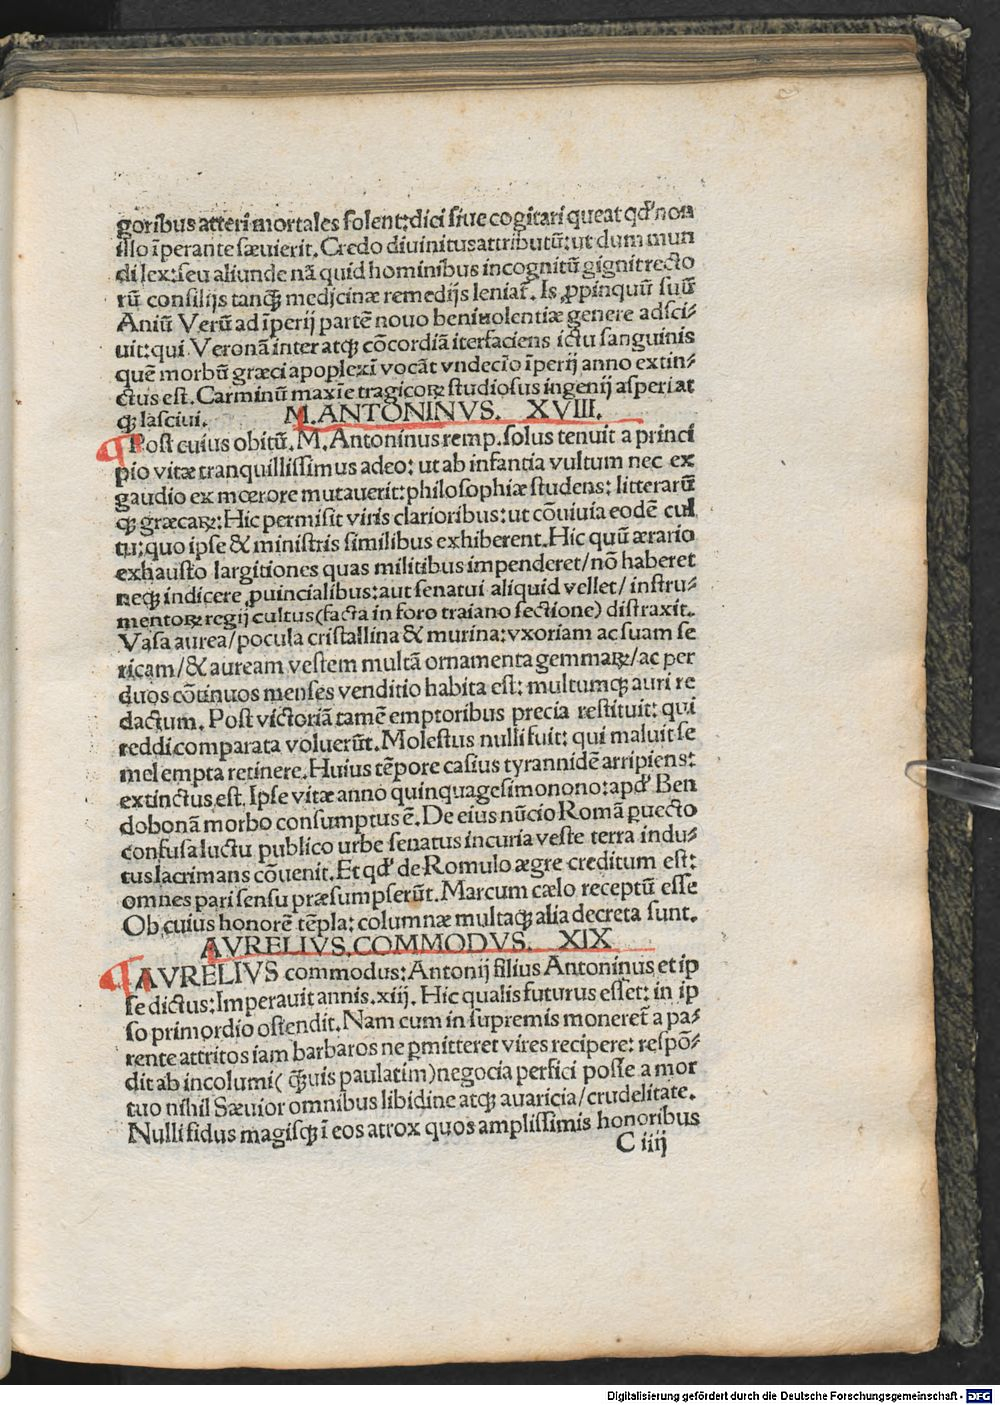 goribus atteri mortales solent: dici siue cogitari queat qđ non
illo īperante sæuierit. Credo diuinitus attributū: ut dum mun
di lex: seu aliunde nā quid hominibus incognitū gignit recto
rū consilijs tanꝙ medicinæ remedijs leniat̄. Is ꝓpinquū suū
Aniū Verū ad īperij partē nouo beniuolentiæ genere adsci⸗
uit: qui Veronā inter atq; cōcordiā iter faciens ictu sanguinis
quē morbū græci apoplexī vocāt vndecīo īperij anno extin⸗
ctus est. Carminū maxīe tragicoꝝ studiosus ingenij asperi at
q; lasciui.
M. ANTONINVS. XVIII.
¶ Post cuius obitū. M. Antoninus remp. solus tenuit a princi
pio vitæ tranquillissimus adeo: ut ab infantia vultum nec ex
gaudio ex mœrore mutauerit: philosophiæ studens: litterarū
q; græcaꝝ: Hic permisit viris clarioribus: ut cōuiuia eodē cul
tu: quo ipse & ministris similibus exhiberent. Hic quū ærario
exhausto largitiones quas militibus impenderet/ nō haberet
neq; indicere ꝓuincialibus: aut senatui aliquid vellet/ instru⸗
mentoꝝ regij cultus (facta in foro traiano sectione) distraxit.
Vasa aurea/ pocula cristallina & murina: vxoriam ac suam se
ricam/ & auream vestem multā ornamenta gemmaꝝ/ ac per
duos cōtinuos menses venditio habita est: multumq; auri re
dactum. Post victoriā tamē emptoribus precia restituit: qui
reddi comparata voluerūt. Molestus nulli fuit: qui maluit se
mel empta retinere. Huius tēpore casius tyrannidē arripiens:
extinctus est. Ipse vitæ anno quinquagesimonono: apđ Ben
dobonā morbo consumptus ē. De eius nūcio Romā ꝑuecto
confusa luctu publico urbe senatus in curia veste terra indu⸗
tus lacrimans cōuenit. Et qđ de Romulo ægre creditum est:
omnes pari sensu præsumpserūt. Marcum cælo receptū esse
Ob cuius honorē tēpla: columnæ multaq; alia decreta sunt.
AVRELIVS. COMMODVS. XIX
¶ AVRELIVS commodus: Antonij filius Antoninus et ip
se dictus: Imperauit annis. xiij. Hic qualis futurus esset: in ip
so primordio ostendit. Nam cum in supremis moneret̄ a pa⸗
rente attritos iam barbaros ne ꝑmitteret vires recipere: respō⸗
dit ab incolumi (ꝙuis paulatim) negocia perfici posse a mor
tuo nihil Sæuior omnibus libidine atq; avaricia/ crudelitate.
Nulli fidus magisq; ī eos atrox quos amplissimis honoribus
C iiij
Digitalisierung gefördert durch die Deutsche Forschungsgemeinschaft - DFG